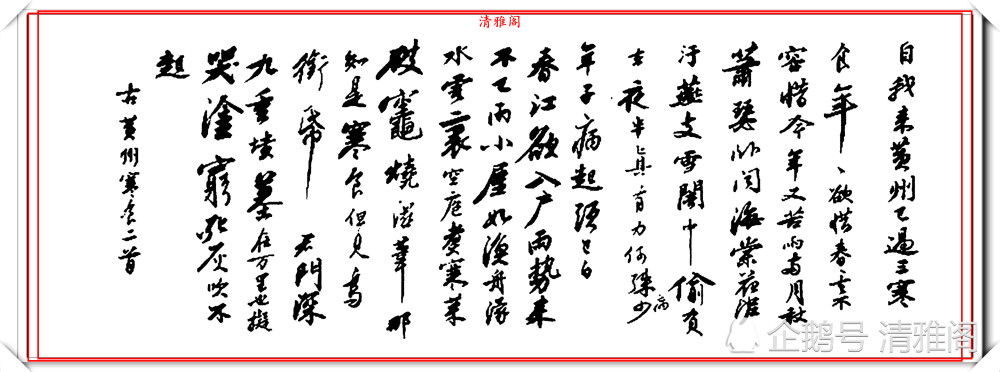 清雅阁
自我来黄州已過三寒
食年〻欲惜春〻去不
容惜今年又苦雨兩月秋
蕭瑟卧聞海棠花泥
汙燕支雪闇中偷負
去夜半真有力何殊病少
年子病起頭已白
春江欲入户雨勢来
不已雨小屋如漁舟濛
水雲裏空庖煮寒菜
破竈燒濕葦那
知是寒食但見烏
銜帋君門深
九重墳墓在万里也擬
哭塗窮死灰吹不
起
右黄州寒食二首
企鹅号 清雅阁